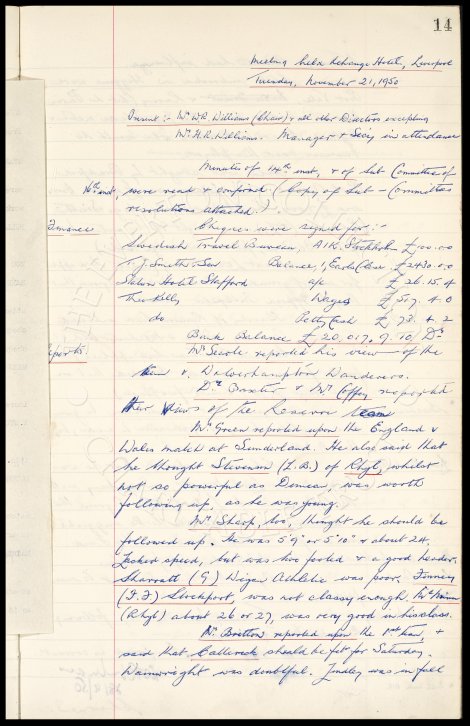 14
Meeting held Exchange Hotel, Liverpool
Tuesday, November 21, 1950
Present :- Mr W.R. Williams (Chair) & all other Directors excepting
Mr. H.R. Williams. Manager & Secy in attendance
Minutes of 14th inst, & of Sub Committee of
16th inst, were read & confirmed (Copy of Sub-Committees
resolutions attached.)
Finance Cheques were signed for :-
Swedish Travel Bureau, Stockholm £
T. J. Smith & Son Balance, Close £2430.0.0
Hotel Stafford a/c £ 26.15.4
Theo Kelly Wages £ 507. 4. 0
do Petty Cash £ 73. 4. 2
Bank Balance £ 20,017. 9. 10 Dr
Reports. Mr Searle reported his view of the
team v. Wolverhampton Wanderers.
Dr Baxter & Mr Coffey reported
their views of the Reserve team
Mr Green reported upon the England v
Wales match at Sunderland. He also said that
he thought Stevenson (L.B.) of Rhyl, whilst
not so powerful as was worth
following up, as he was young.
Mr Sharp, too, thought he should be
followed up. He was 5'9" or 5'10" & about 24,
lacked speed, but was two footed & a good header.
Sharratt (G) Wigan Athletic was poor. Finney
(I.F) Stockport, was not classy enough.
(Rhyl) about 26 or 27, was very good in his class.
Mr. Britton reported upon the 1st team, &
said that Catterick should be fit for Saturday.
Wainwright was doubtful. Lindley was in full